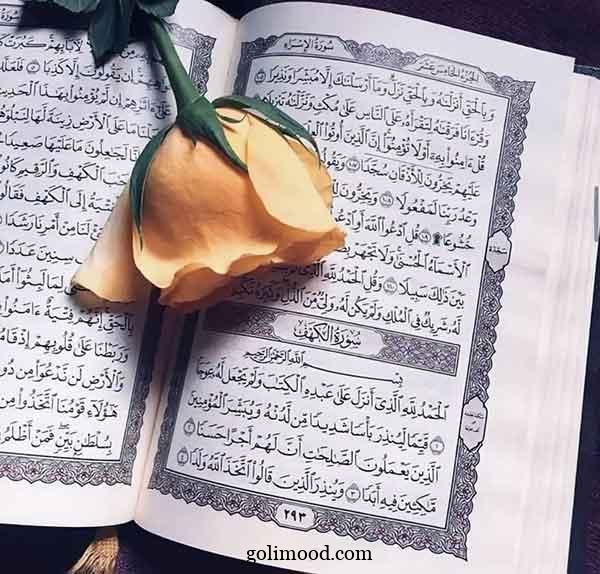 الجزء الخامس عشر سورة الإسراء
وَبِالْحَقِّ أَنزَلْنَٰهُ وَبِالْحَقِّ نَزَلَ وَمَآ أَرْسَلْنَٰكَ إِلَّا مُبَشِّرًا وَنَذِيرًا ١٠٥
وَقُرْءَانًا فَرَقْنَٰهُ لِتَقْرَأَهُۥ عَلَى النَّاسِ عَلَىٰ مُكْثٍ وَنَزَّلْنَٰهُ
قُلْ ءَامِنُوا۟ بِهِۦٓ أَوْ لَا تُؤْمِنُوٓا۟ إِنَّ الَّذِينَ أُوتُوا۟
عَلَيْهِمْ يَخِرُّونَ لِلْأَذْقَانِ سُجَّدًا ١٠٧
وَعْدُ رَبِّنَا لَمَفْعُولًا ١٠٨ وَيَخِرُّونَ
خُشُوعًا ۩ ١٠٩ قُلِ ادْعُوا۟ اللَّهَ أَوِ
سجدة
الْأَسْمَآءُ الْحُسْنَىٰ وَلَا تَجْهَرْ
بَيْنَ ذَٰلِكَ سَبِيلًا ١١٠ وَقُلِ الْحَمْدُ لِلَّهِ الَّذِى
لَّهُۥ شَرِيكٌ فِى الْمُلْكِ وَلَمْ يَكُن لَّهُۥ وَلِىٌّ مِّنَ الذُّلِّ وَكَبِّرْهُ
سُورَةُ الْكَهْفِ
بِسْمِ اللَّهِ الرَّحْمَٰنِ الرَّحِيمِ
الْحَمْدُ لِلَّهِ الَّذِىٓ أَنزَلَ عَلَىٰ عَبْدِهِ الْكِتَٰبَ وَلَمْ يَجْعَل لَّهُۥ عِوَجَا
١ قَيِّمًا لِّيُنذِرَ بَأْسًا شَدِيدًا مِّن لَّدُنْهُ وَيُبَشِّرَ الْمُؤْمِنِينَ
الَّذِينَ يَعْمَلُونَ الصَّٰلِحَٰتِ أَنَّ لَهُمْ أَجْرًا حَسَنًا ٢
مَّٰكِثِينَ فِيهِ أَبَدًا ٣ وَيُنذِرَ الَّذِينَ قَالُوا۟ اتَّخَذَ اللَّهُ وَلَدًا ٤
٢٩٣
لِءَابَآئِهِمْ كَبُرَتْ
إِن يَقُولُونَ إِلَّا كَذِبًا ٥ فَلَعَلَّكَ
إِن لَّمْ يُؤْمِنُوا۟ بِهَٰذَا الْحَدِيثِ
مَا عَلَى الْأَرْضِ زِينَةً لَّهَا
لَجَٰعِلُونَ مَا عَلَيْهَا صَعِيدًا
الْكَهْفِ وَالرَّقِيمِ كَانُوا۟
إِلَى الْكَهْفِ فَقَالُوا۟
لَنَا مِنْ أَمْرِنَا رَشَدًا
سِنِينَ عَدَدًا
لِمَا لَبِثُوٓا۟
بِالْحَقِّ إِنَّهُمْ فِتْيَةٌ ءَامَنُوا۟
وَرَبَطْنَا عَلَىٰ قُلُوبِهِمْ إِذْ قَامُوا۟
وَالْأَرْضِ لَن نَّدْعُوَا۟ مِن
هَٰٓؤُلَآءِ قَوْمُنَا اتَّخَذُوا۟ مِن
بِسُلْطَٰنٍۭ بَيِّنٍ فَمَنْ أَظْلَمُ
golimood.com